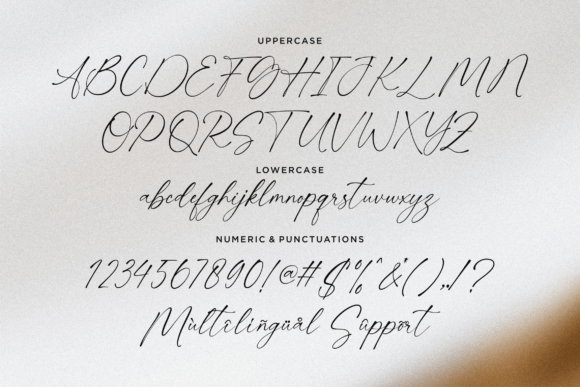 UPPERCASE
ABCDEFGHIJKLMN
OPQRSTUVWXYZ
LOWERCASE
abcdefghijklmnopqrstuvwxyz
NUMERIC & PUNCTUATIONS
1234567890!@#$%^&*(),./?
Mùltêliñgüål Sûppört